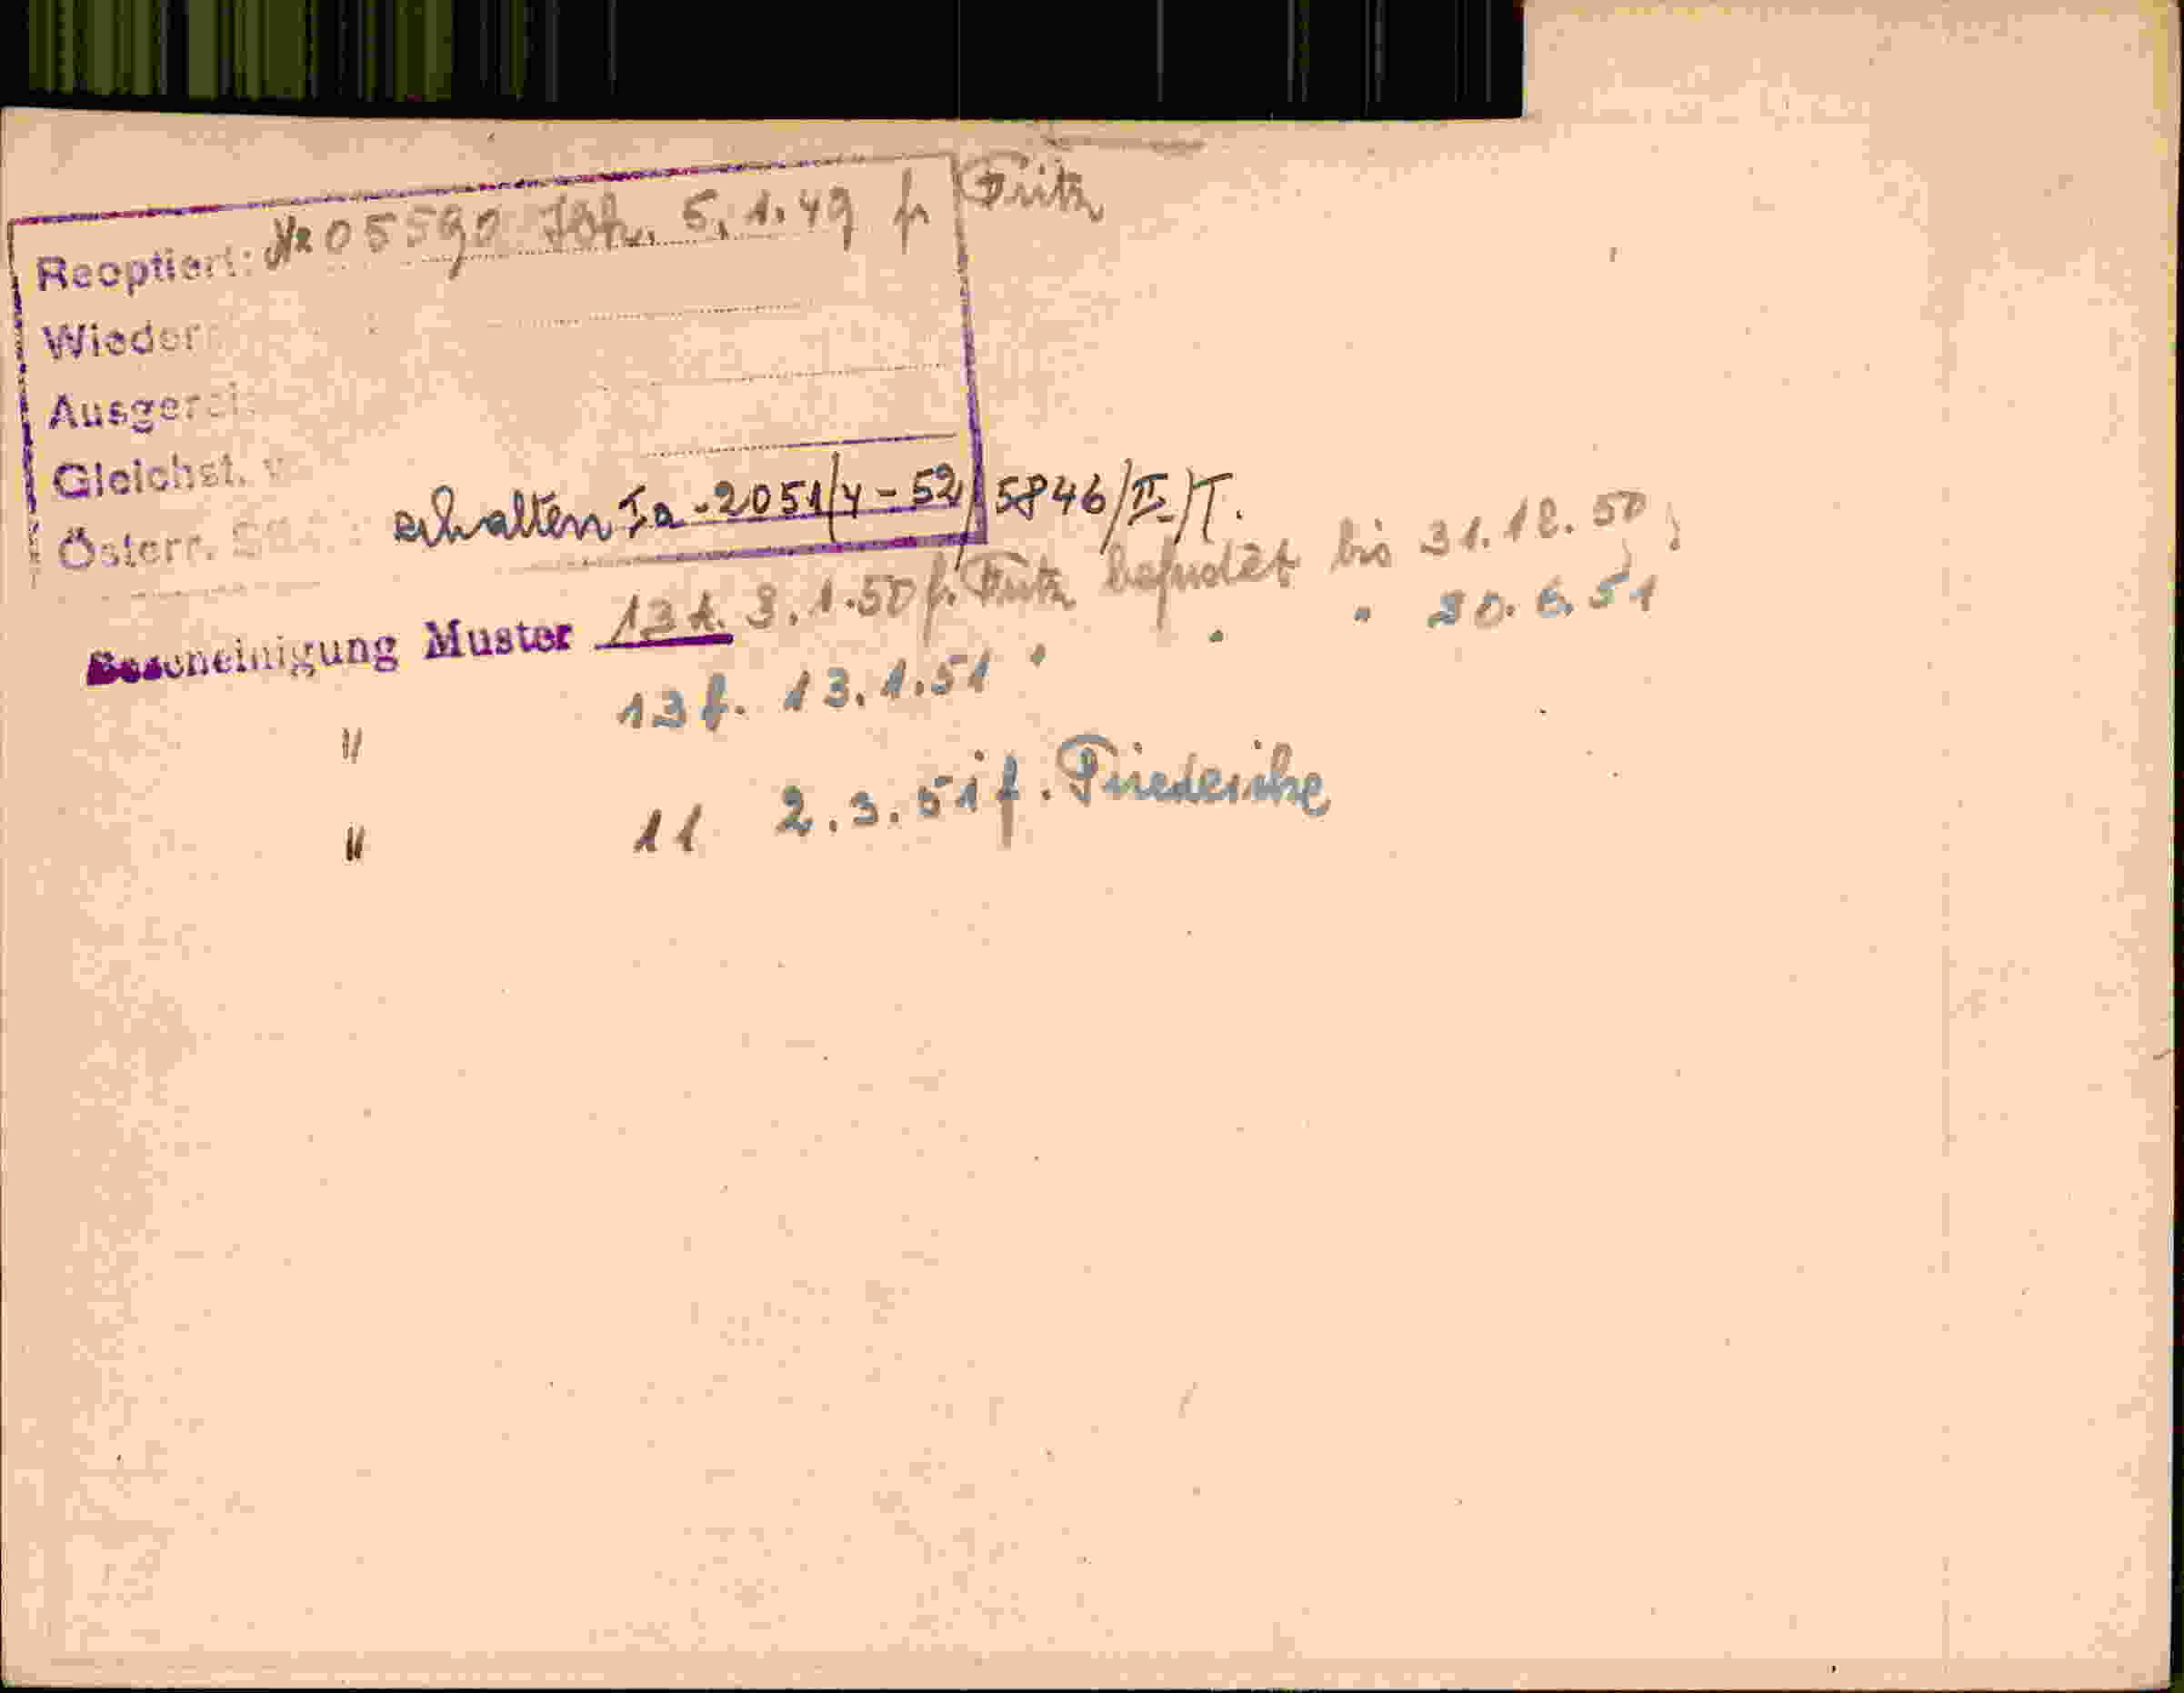 Reoptiert: № 05590 Ibk. 5.1.49 f. Fritz
Wieder
Ausger
Gleichst. v
Österr. erhalten Ia-2051/4-52/5846/II/T.
Bescheinigung Muster 13f. 3.1.50 f. Fritz befristet bis 31.12.50;
" 13f. 13.1.51 " " " 30.6.51
" 11 2.3.51 f. Friederike